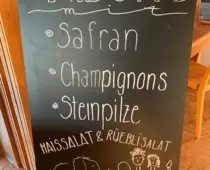 mit
Safran
Champignons
Steinpilze
MAISSALAT & RÜEBLISALAT